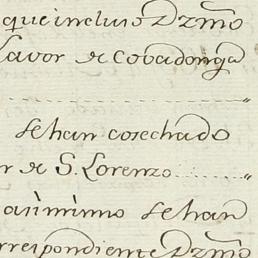 que incluio Dzmo
favor de Cobadonga
se han cosechado
r de S. Lorenzo
asimismo se han
rrespondiente Dzmo